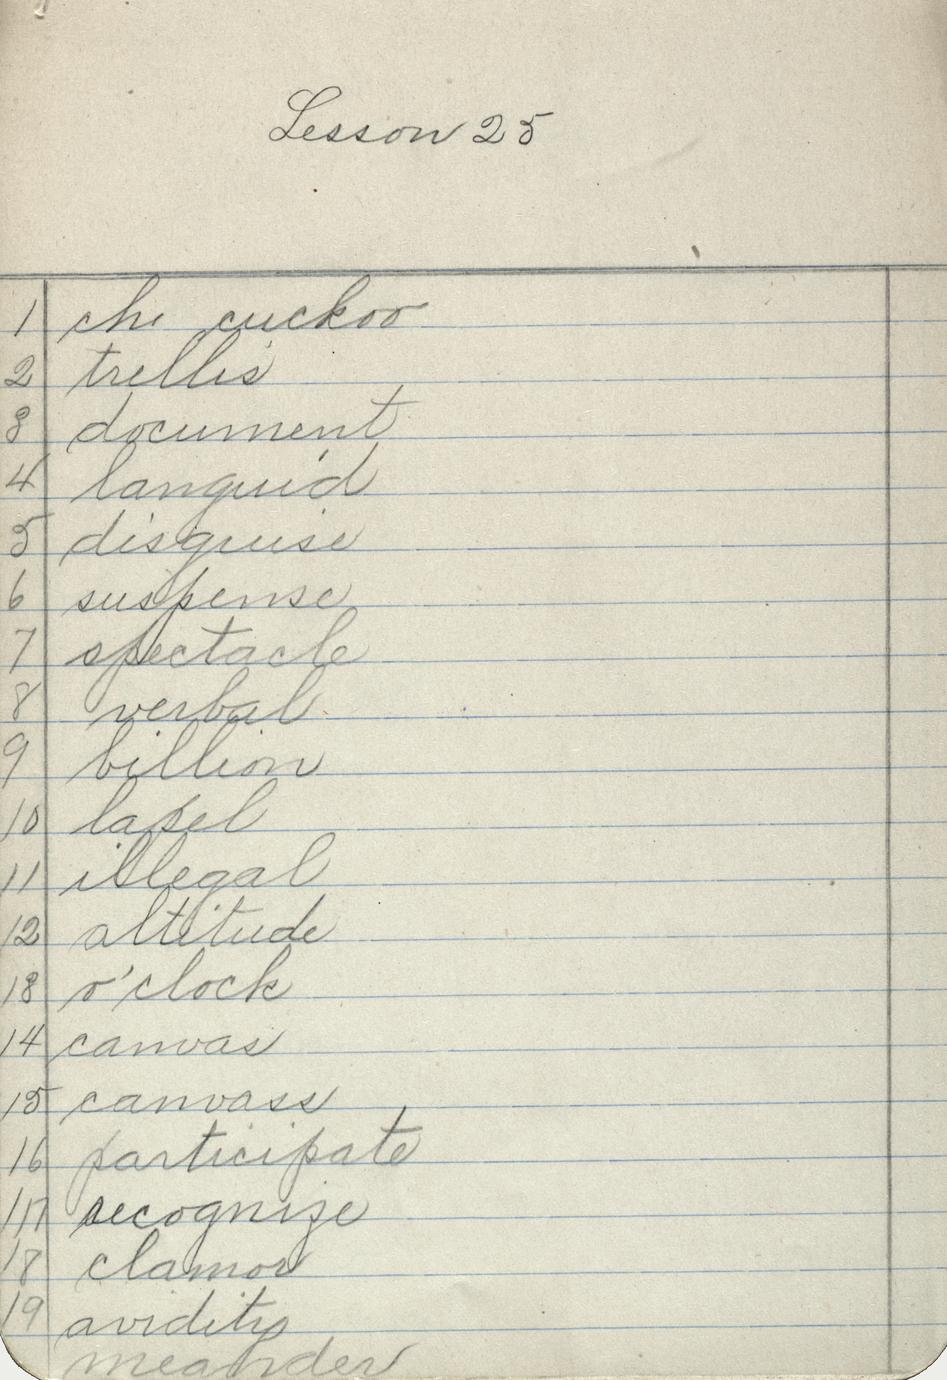 Lesson 25
1 chi cuckoo
2 trellis
3 document
4 languid
5 disguise
6 suspense
7 spectacle
8 verbal
9 billion
10 lapel
11 illegal
12 altitude
13 o'clock
14 canvas
15 canvass
16 participate
17 recognize
18 clamor
19 avidity
meander